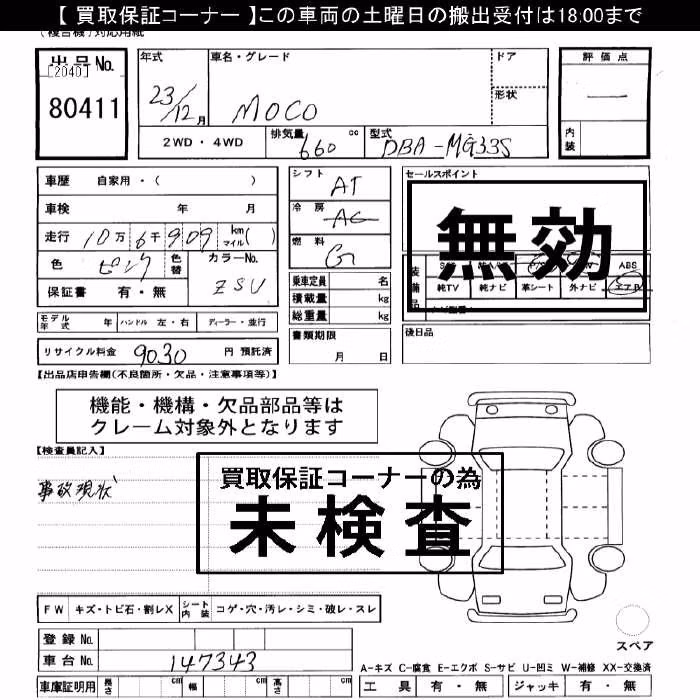 【 買取保証コーナー 】この車両の土曜日の搬出受付は18:00まで
(複合機)対応用紙
出品No. 年式 車名・グレード ドア 評価点
[2040]
80411 23/12月 MOCO 形状 —
2WD・4WD 排気量 660 cc 型式 DBA-MG33S 内装
車歴 自家用・( ) シフト AT セールスポイント
車検 年 月 冷房 AC
無効
走行 10万6千909 km マイル( ) 燃料 G
色 ピンク 色替 カラーNo. ZSU 乗車定員 名 装備品 ABS
保証書 有・無 積載量 kg 純TV 純ナビ 革シート 外ナビ エアB
総重量 kg
モデル年式 年 ハンドル 左・右 ディーラー・並行 書類期限 月 日 後日品
リサイクル料金 9030 円 預託済
【出品店申告欄(不良箇所・欠品・注意事項等)】
機能・機構・欠品部品等は
クレーム対象外となります
【検査員記入】
買取保証コーナーの為
事故現状
未検査
FW キズ・トビ石・割レX シート内装 コゲ・穴・汚レ・シミ・破レ・スレ
登録No.
スペア
車台No. 147343
A-キズ C-腐食 E-エクボ S-サビ U-凹ミ W-補修 XX-交換済
車庫証明用 長さ cm 幅 cm 高さ cm 工具 有・無 ジャッキ 有・無